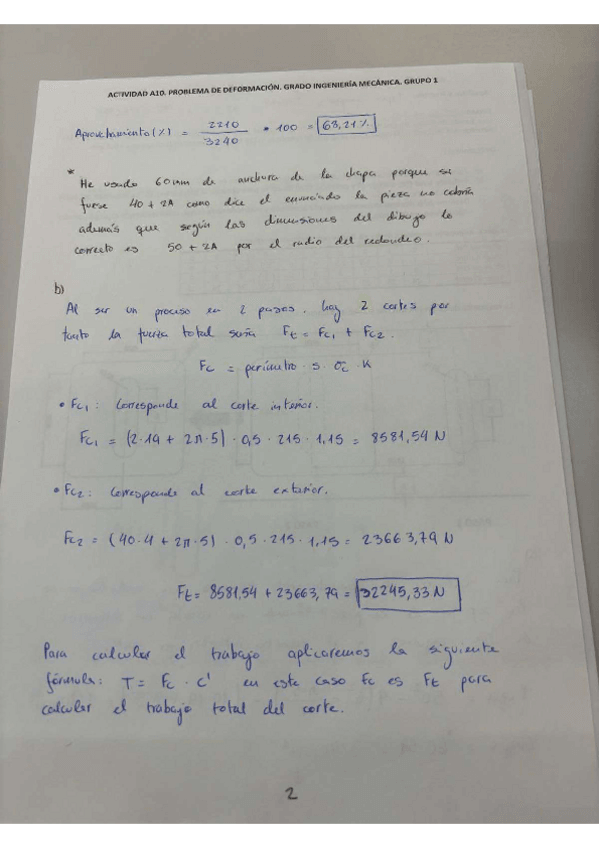 ACTIVIDAD A10. PROBLEMA DE DEFORMACIÓN. GRADO INGENIERÍA MECÁNICA. GRUPO 1
Aprovechamiento (%) = 2210 / 3240 • 100 = 68,21 %
* He usado 60 mm de anchura de la chapa porque si
fuese 40 + 2A como dice el enunciado la pieza no cabría
además que según las dimensiones del dibujo lo
correcto es 50 + 2A por el radio del redondeo.
b)
Al ser un proceso en 2 pasos, hay 2 cortes por
tanto la fuerza total sería Ft = Fc1 + Fc2.
Fc = perímetro · s · σc · K
• Fc1: Corresponde al corte interior.
Fc1 = (2·19 + 2π·5) · 0,5 · 215 · 1,15 = 8581,54 N
• Fc2: Corresponde al corte exterior.
Fc2 = (40·4 + 2π·5) · 0,5 · 215 · 1,15 = 23663,79 N
Ft = 8581,54 + 23663,79 = 32245,33 N
Para calcular el trabajo aplicaremos la siguiente
fórmula: T = Fc · c' en este caso Fc es Ft para
calcular el trabajo total del corte.
2